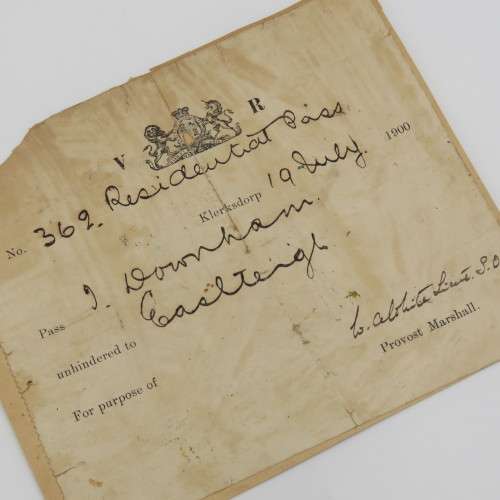 V R
No. 369. Residential Pass
Klerksdorp 19 July. 1900
Pass J. Downham.
unhindered to Eastleigh
For purpose of
W. White Lieut.
Provost Marshall.